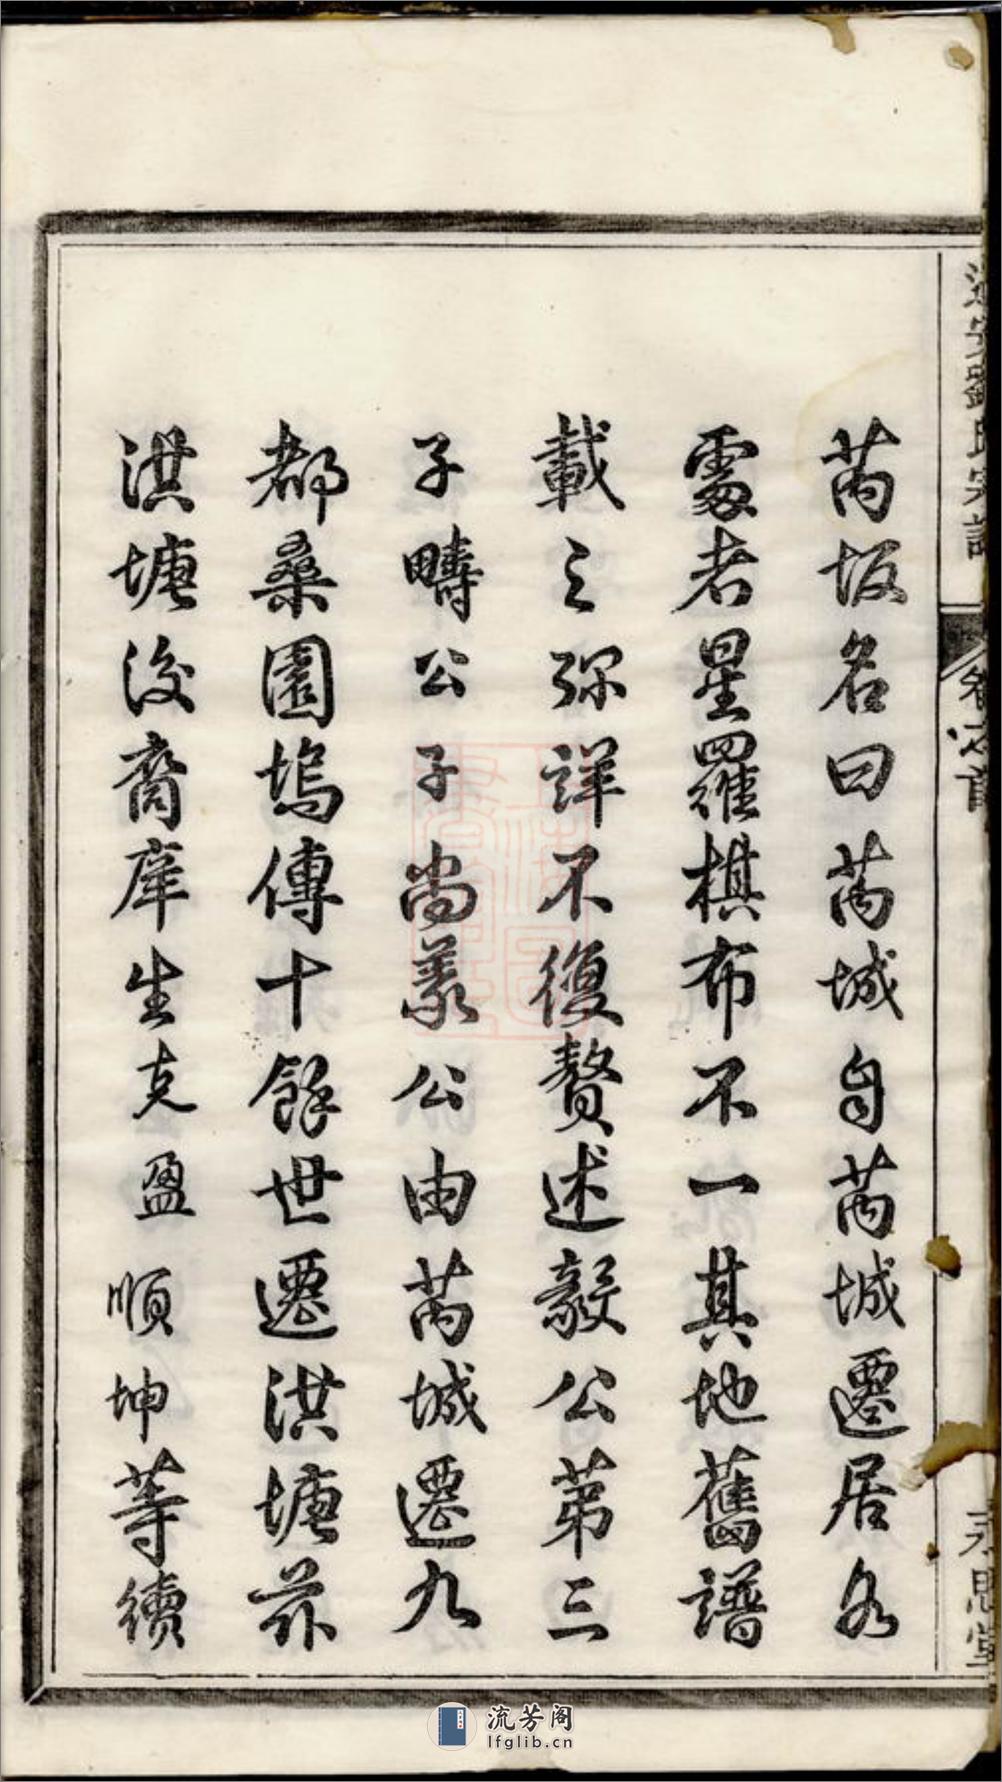 劉氏宗譜
卷之首
永思堂
芮坂名曰芮城自芮城遷居各
處者星羅棋布不一其地舊譜
載之弥詳不復贅述毅公第三
子疇公子尚義公由芮城遷九
都桑園塢傳十餘世遷洪塘茲
洪塘後裔庠生克盈順坤等續
流芳阁
lfglib.cn